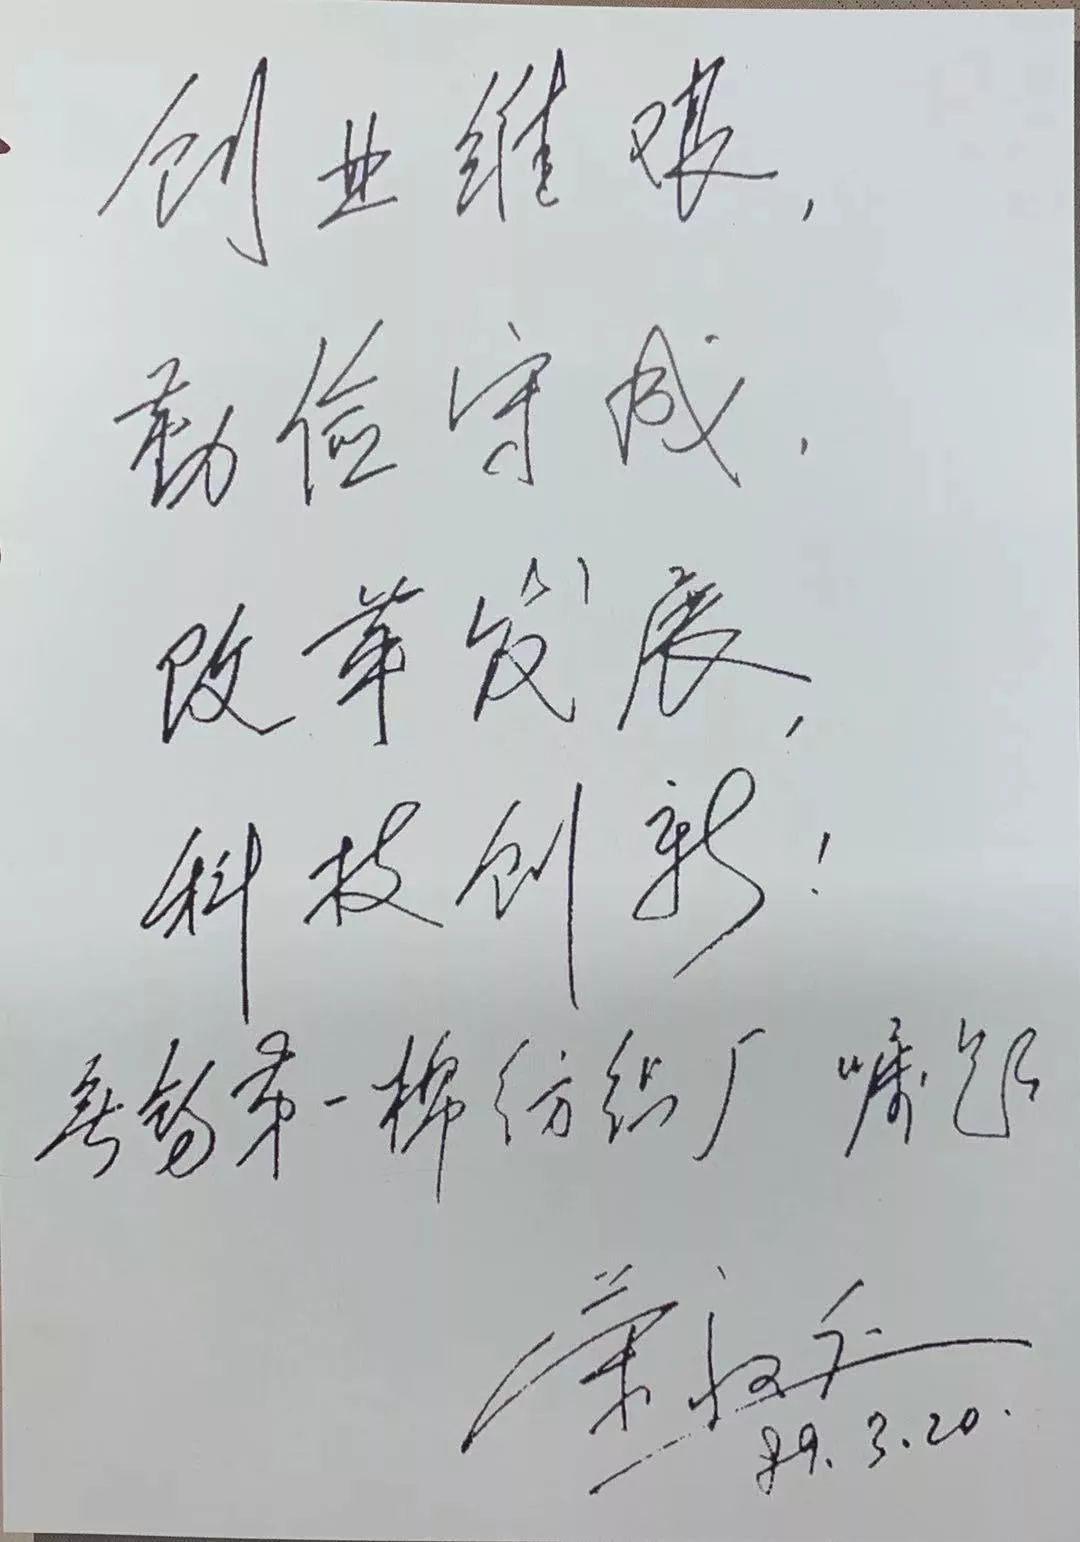 创业维艰,
勤俭守成,
改革发展,
科技创新!
无锡第一棉纺织厂 嘱题
89.3.20.